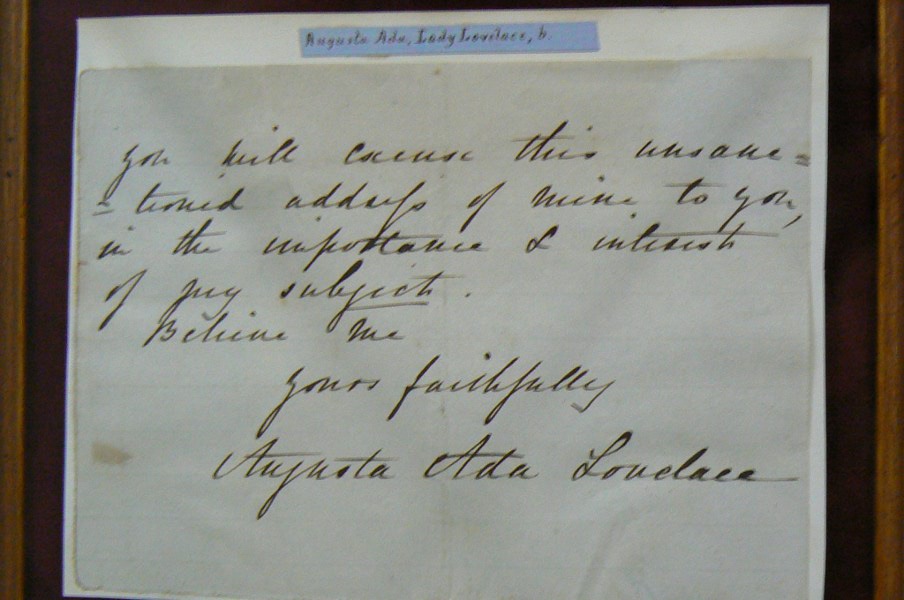 Augusta Ada, Lady Lovelace, b.
you will excuse this unsanc=
=tioned address of mine to you,
in the importance & interest
of my subject.
Believe me
yours faithfully
Augusta Ada Lovelace